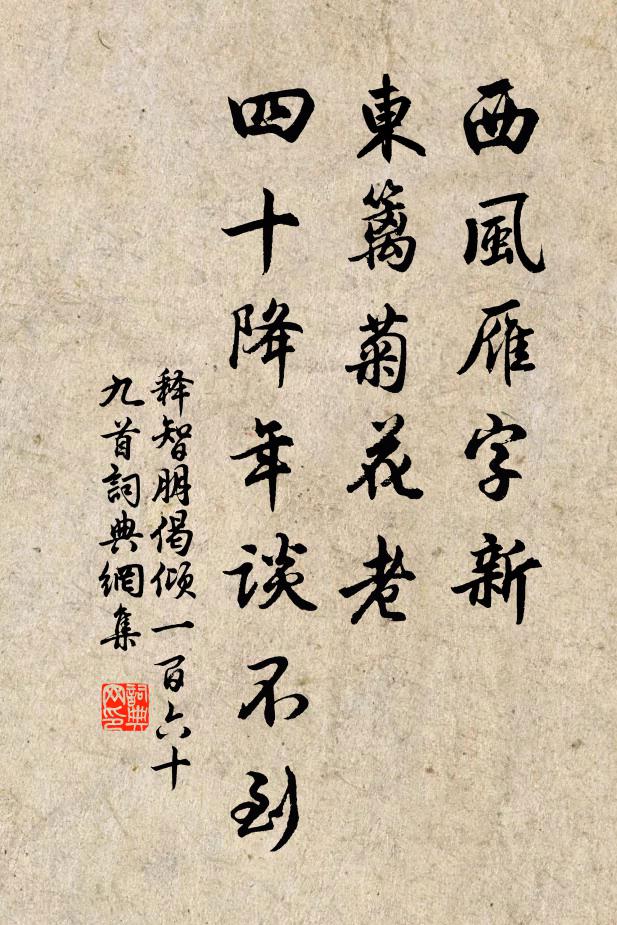 西風雁字新
東籬菊花老
四十降年談不到
释智朋偈傾一百六十
九首詞典網集
詞典网印